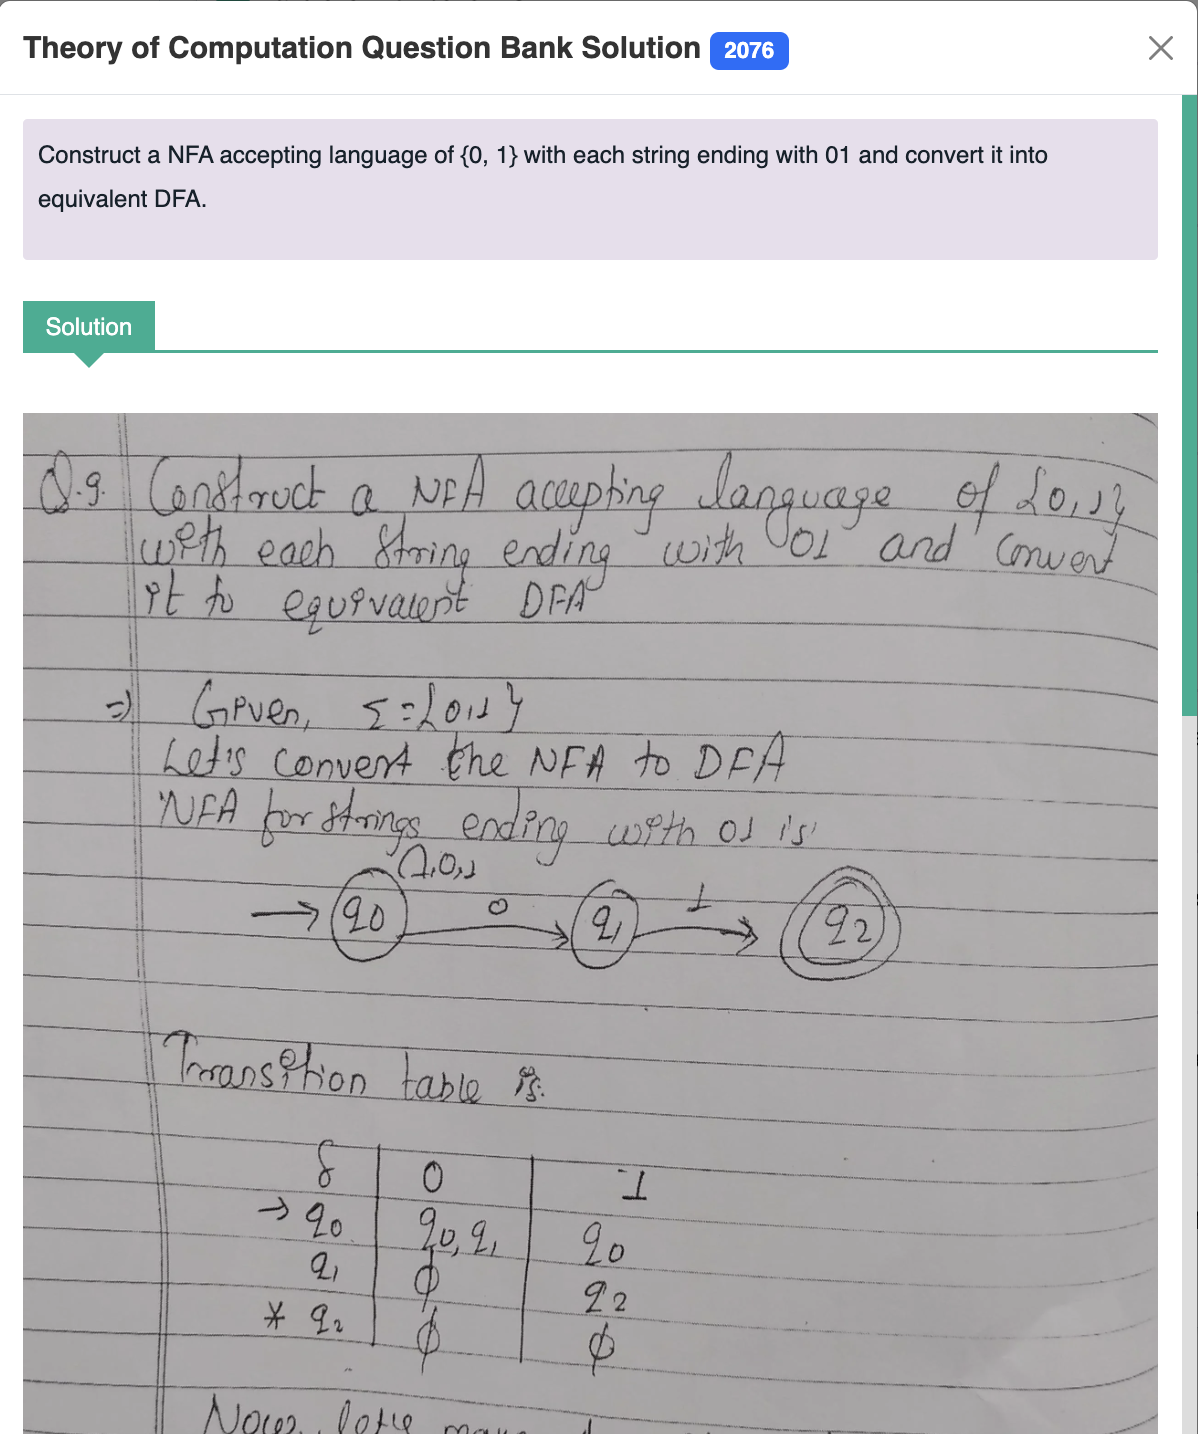 Theory of Computation Question Bank Solution 2076
Construct a NFA accepting language of {0, 1} with each string ending with 01 and convert it into
equivalent DFA.
Solution
Q.9. Construct a NFA accepting language of {0,1}
with each string ending with 01 and convert
it to equivalent DFA
⇒ Given, Σ={0,1}
Let's convert the NFA to DFA
NFA for strings ending with 01 is
0,1
→ q0 0 q1 1 q2
Transition table is.
δ 0 1
→ q0 q0, q1 q0
q1 ϕ q2
* q2 ϕ ϕ
Now,